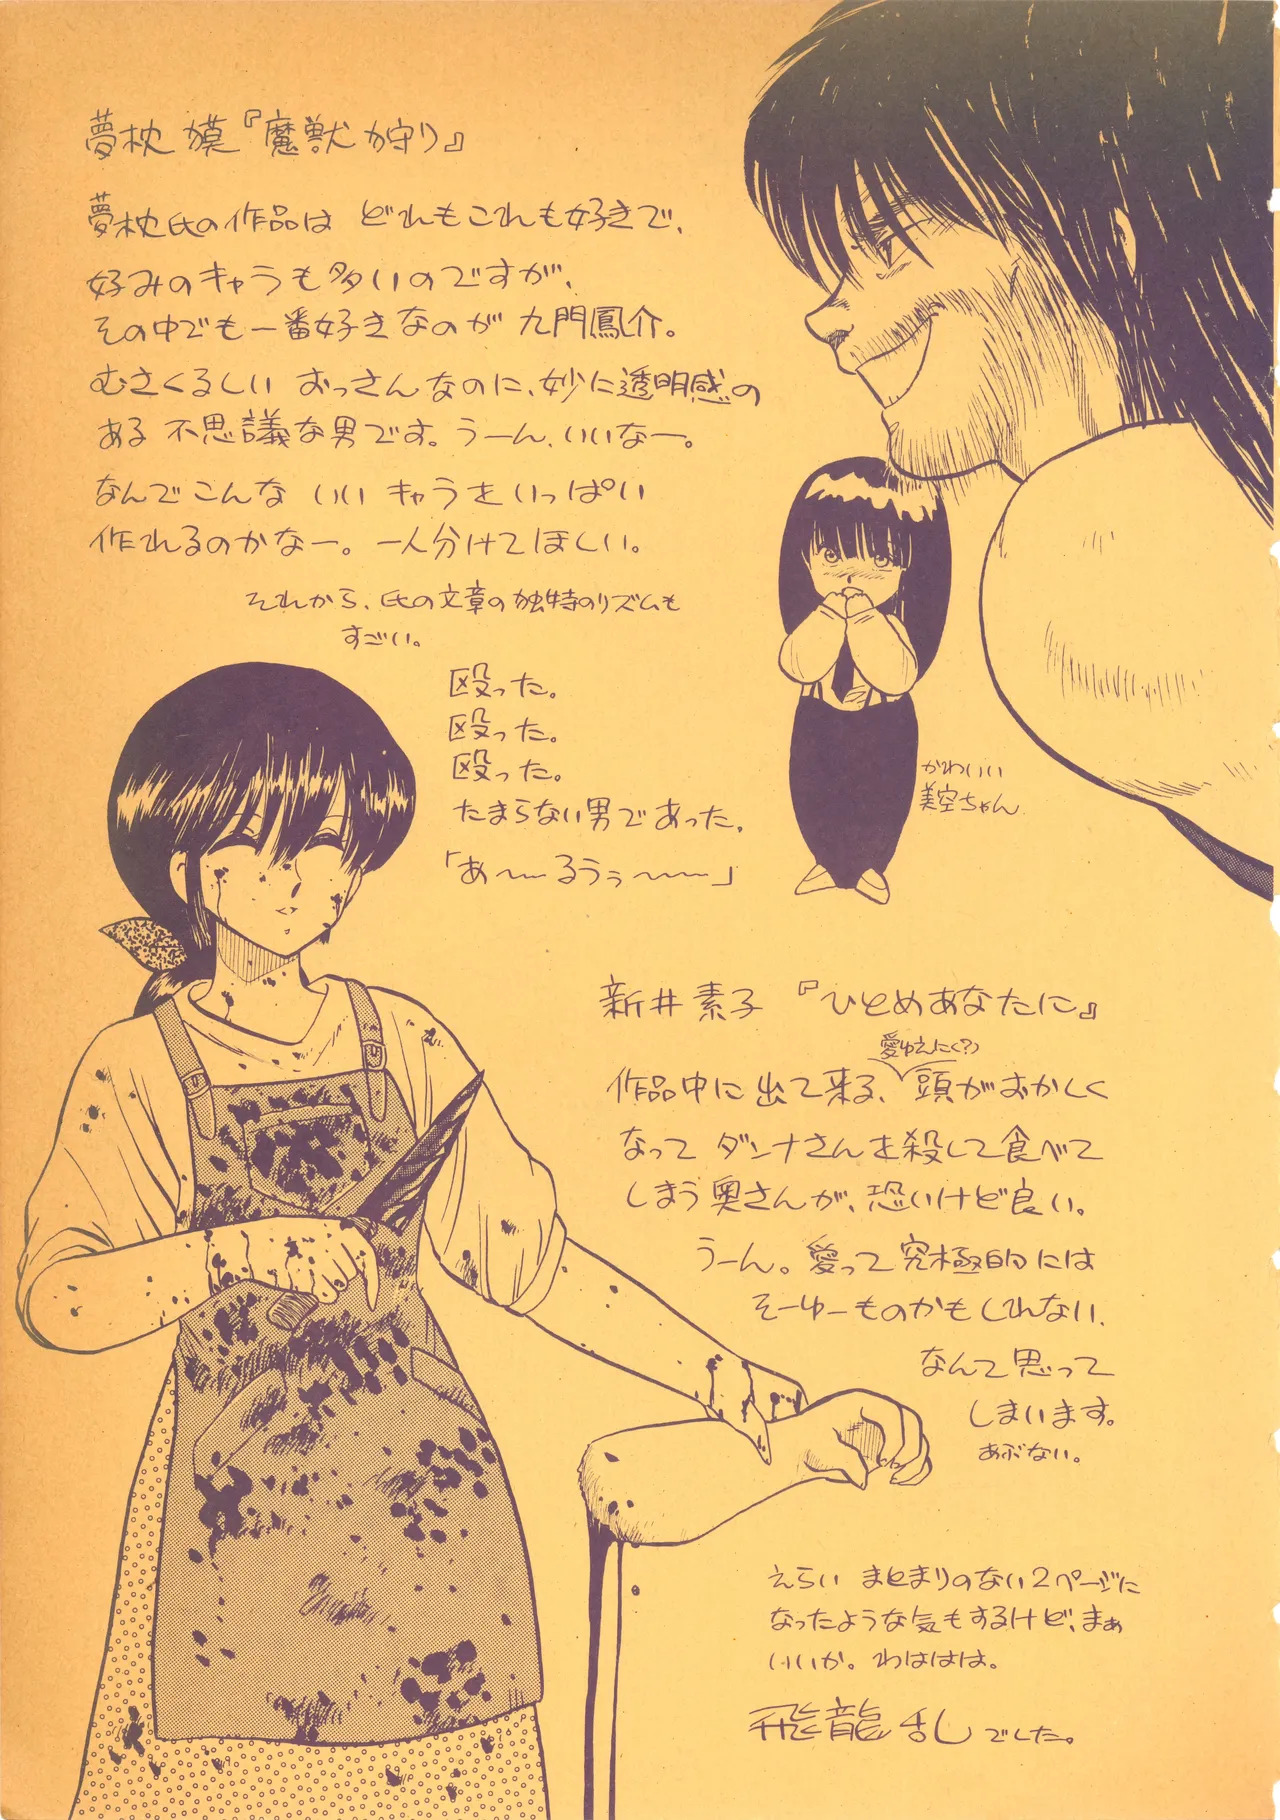 夢枕 獏『魔獣狩り』
夢枕氏の作品は どれもこれも好きで、
好みのキャラも多いのですが、
その中でも一番好きなのが 九門鳳介。
むさくるしい おっさんなのに、妙に透明感の
ある 不思議な男です。うーん、いいなー。
なんで こんな いい キャラを いっぱい
作れるのかなー。一人分けてほしい。
それから、氏の文章の独特のリズムも
すごい。
殴った。
殴った。
殴った。
たまらない男であった。
「あ〜〜るうぅ〜〜〜」
かわいい
美空ちゃん
新井素子 『ひとめあなたに』
愛ゆえに(?)
作品中に出て来る、頭がおかしく
なって ダンナさんを殺して食べて
しまう奥さんが、恐いけど良い。
うーん。愛って究極的には
そーゆーものかもしれない、
なんて思って
しまいます。
あぶない。
えらい まとまりのない2ページに
なったような気もするけど、まぁ
いいか。わははは。
飛龍乱でした。